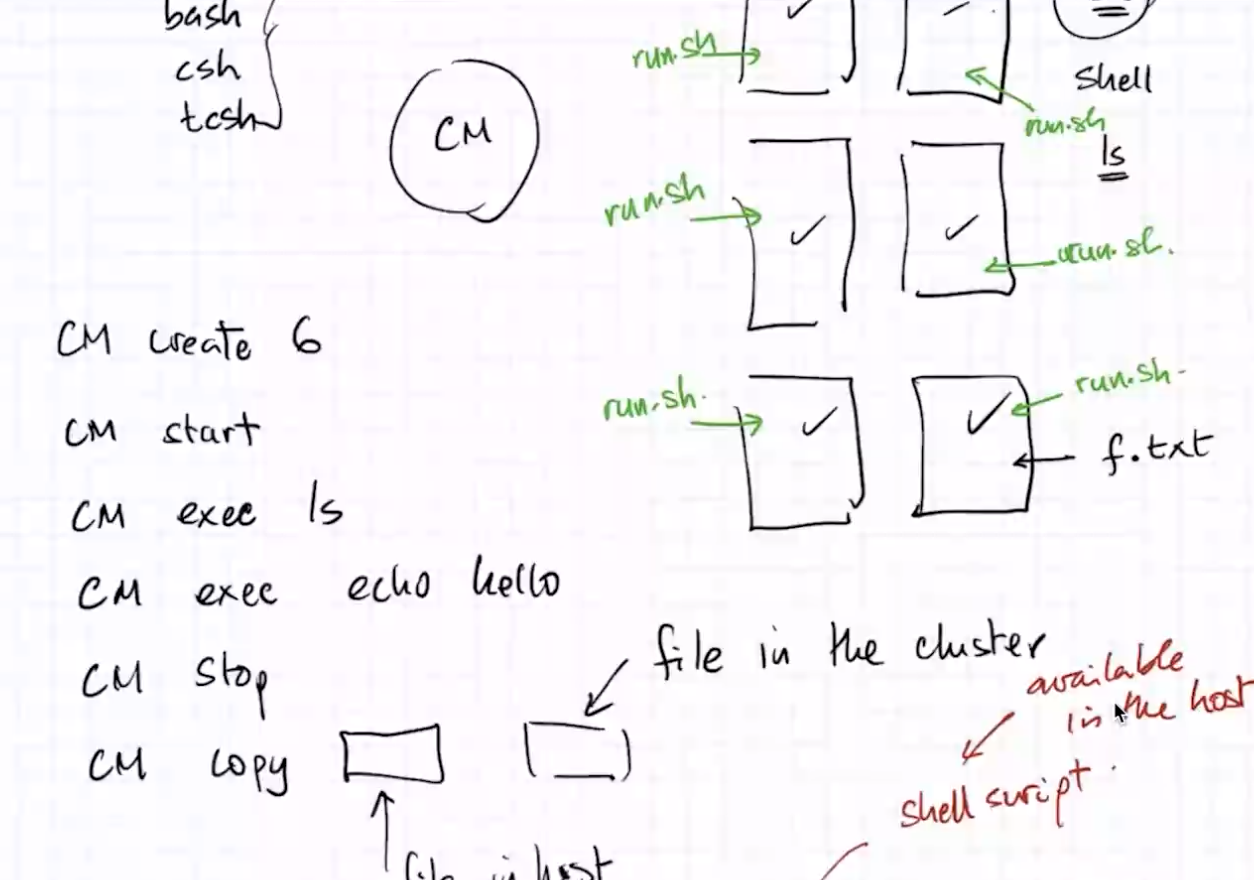 bash
csh
tcsh
CM
run.sh
Shell
run.sh
ls
run.sh
run.sh.
run.sh.
run.sh.
f.txt
CM create 6
CM start
CM exec ls
CM exec echo hello
CM stop
CM copy
file in the cluster
file in host
available
in the host
shell script